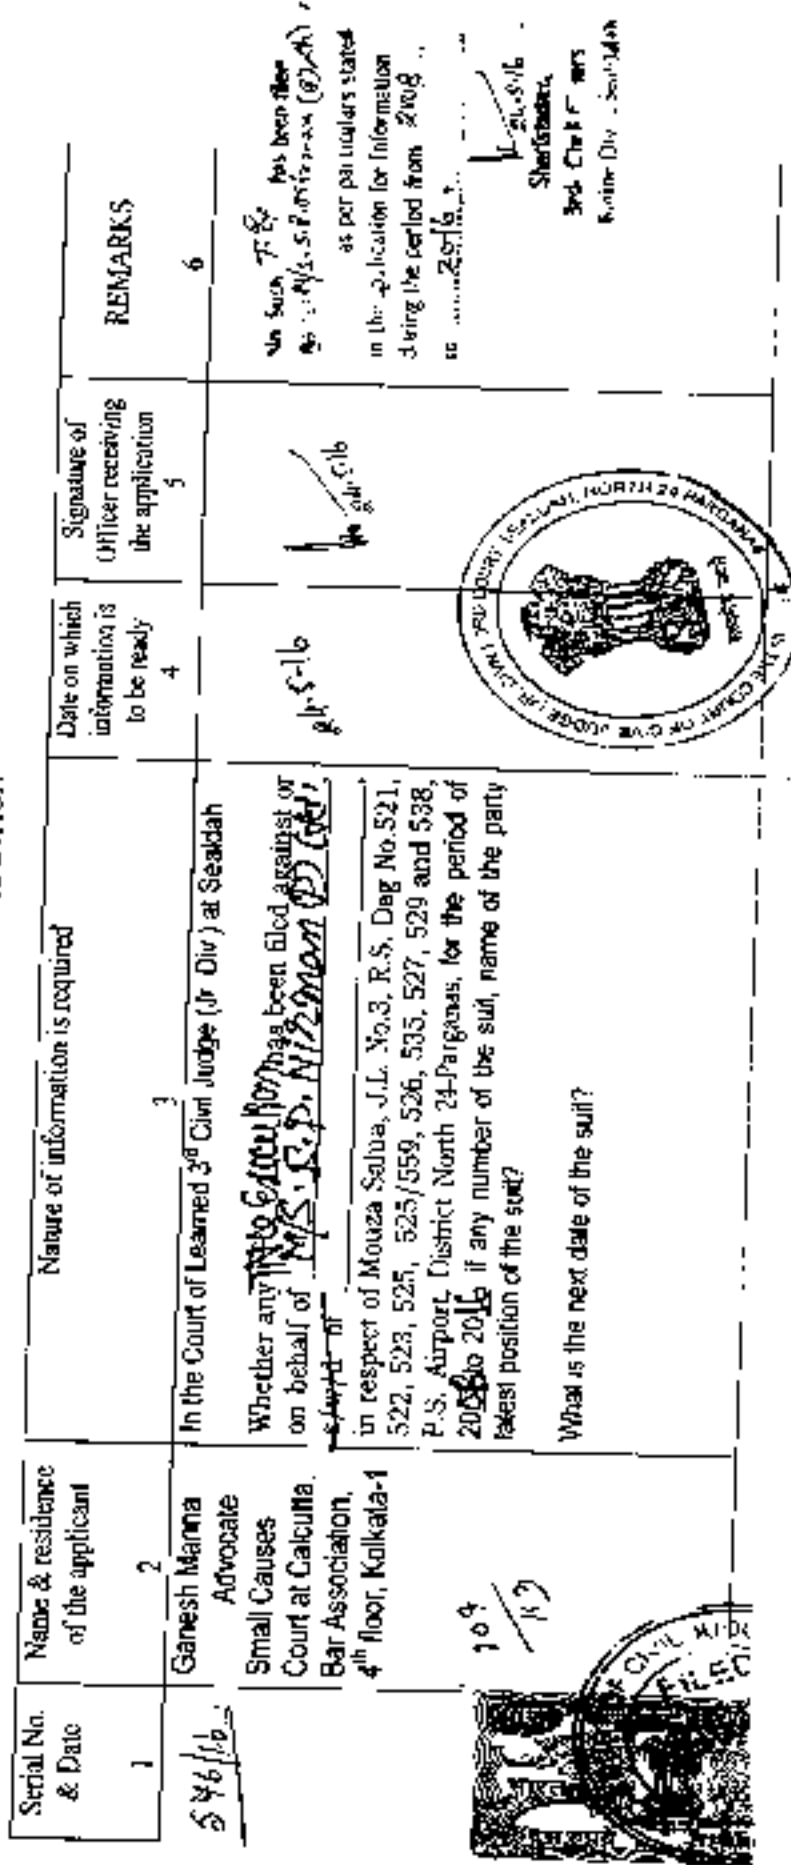 Serial No.
& Date
1
Name & residence
of the applicant
2
Nature of information is required
3
Date on which
information is
to be ready
4
Signature of
Officer receiving
the application
5
REMARKS
6
546/16
Ganesh Manna
Advocate
Small Causes
Court at Calcutta,
Bar Association,
4th floor, Kolkata-1
In the Court of Learned 3rd Civil Judge (Jr. Div) at Sealdah
Whether any has been filed against or
on behalf of M/S. S.P. Nirman (P) Ltd,
s/w/d of
in respect of Mouza Salua, J.L. No.3, R.S. Dag No.521,
522, 523, 525, 525/559, 526, 535, 527, 529 and 538,
P.S. Airport, District North 24-Parganas, for the period of
2008 to 2016 if any number of the suit, name of the party
latest position of the suit?
What is the next date of the suit?
24.5.16
24.5.16
No Such T.S. has been filed
as per particulars stated
in the application for Information
during the period from 2008
to 2016
24.5.16
Sheristadar,
IN THE COURT OF CIVIL JUDGE (JR. DIVN.) 3RD COURT, SEALDAH, NORTH 24 PARGANAS
CIVIL
FILED